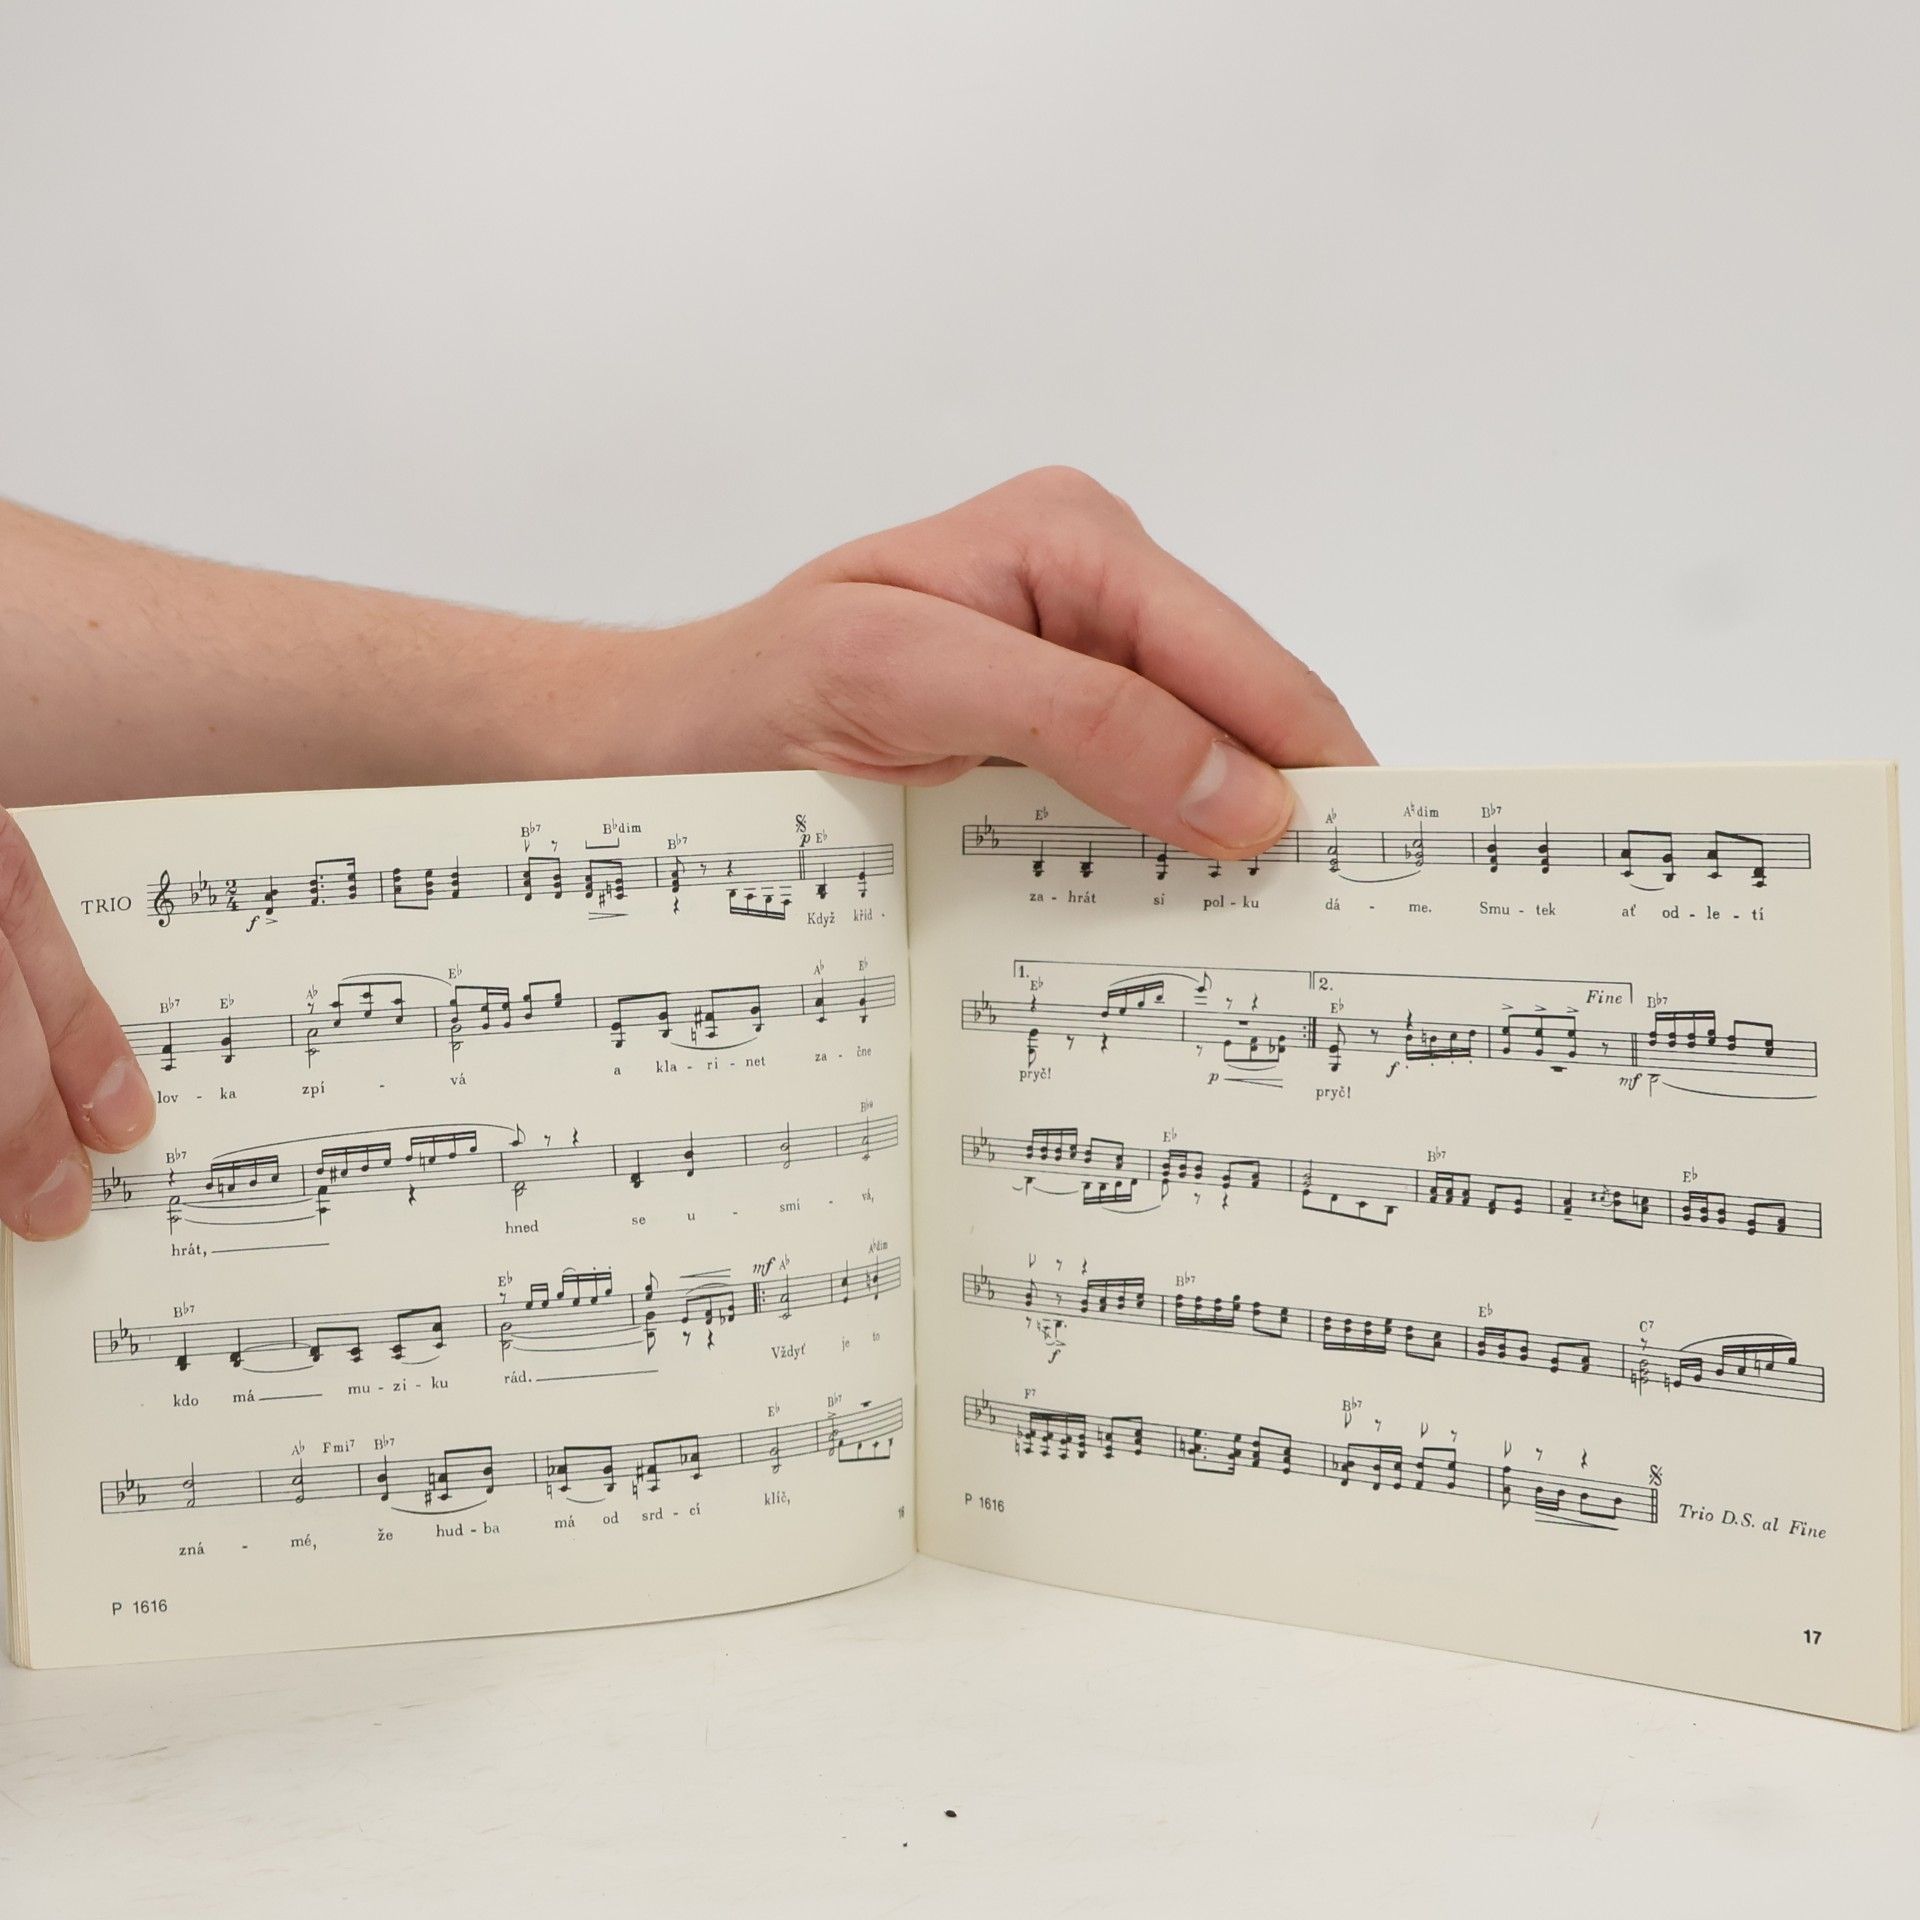 B♭7 B♭dim B♭7 p E♭
TRIO 2/4 f Když kříd -
B♭7 E♭ A♭ E♭ A♭ E♭
lov - ka zpí - vá a kla - ri - net za - čne
B♭7 B♭9
hrát, hned se u - smí - vá,
B♭7 E♭ mf A♭ A♮dim
kdo má mu - zi - ku rád. Vždyť je to
A♭ Fmi7 B♭7 E♭ B♭7
zná - mé, že hud - ba má od srd - cí klíč,
16
P 1616
E♭ A♭ A♮dim B♭7
za - hrát si pol - ku dá - me. Smu - tek ať od - le - tí
1. E♭ 2. E♭ Fine B♭7
pryč! p pryč! f mf
E♭ B♭7 E♭
B♭7 E♭ C7
f
F7 B♭7
P 1616
Trio D.S. al Fine
17